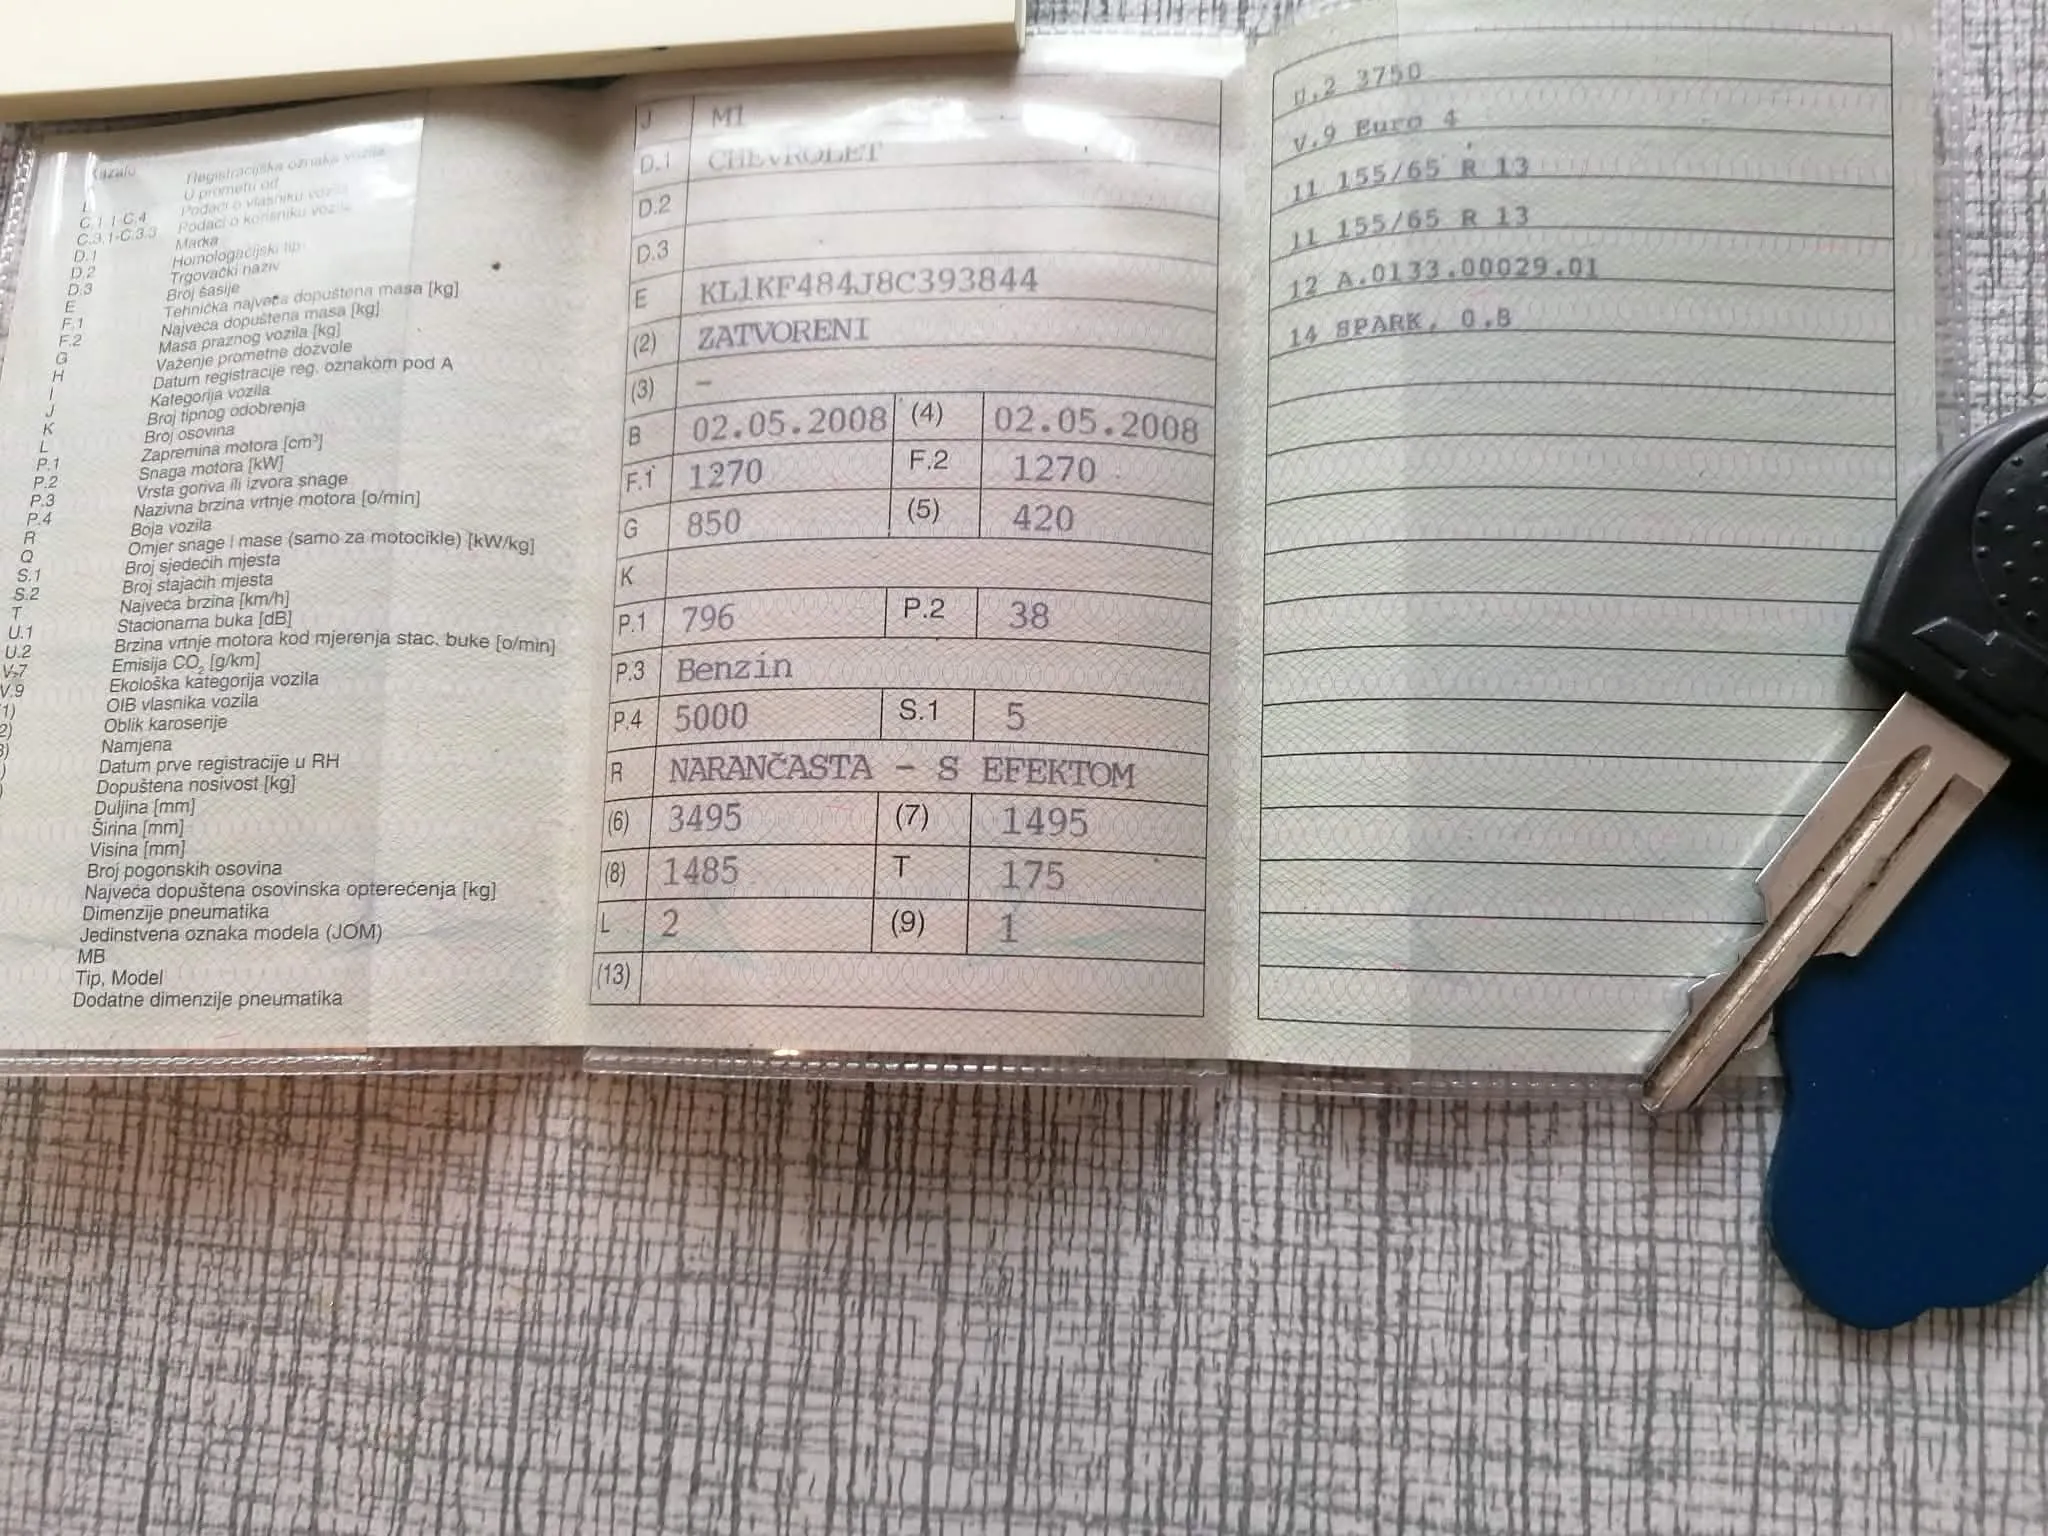 Kazalo
Registracijska oznaka vozila
U prometu od
C.1.1-C.4 Podaci o vlasniku vozila
C.3.1-C.3.3 Podaci o korisniku vozila
D.1 Marka
D.2 Homologacijski tip
D.3 Trgovački naziv
E Broj šasije
F.1 Tehnička najveća dopuštena masa [kg]
F.2 Najveća dopuštena masa [kg]
G Masa praznog vozila [kg]
H Važenje prometne dozvole
I Datum registracije reg. oznakom pod A
J Kategorija vozila
K Broj tipnog odobrenja
L Broj osovina
P.1 Zapremina motora [cm³]
P.2 Snaga motora [kW]
P.3 Vrsta goriva ili izvora snage
P.4 Nazivna brzina vrtnje motora [o/min]
R Boja vozila
Q Omjer snage i mase (samo za motocikle) [kW/kg]
S.1 Broj sjedećih mjesta
S.2 Broj stajaćih mjesta
T Najveća brzina [km/h]
U.1 Stacionarna buka [dB]
U.2 Brzina vrtnje motora kod mjerenja stac. buke [o/min]
V.7 Emisija CO₂ [g/km]
V.9 Ekološka kategorija vozila
1) OIB vlasnika vozila
2) Oblik karoserije
3) Namjena
) Datum prve registracije u RH
) Dopuštena nosivost [kg]
Duljina [mm]
Širina [mm]
Visina [mm]
Broj pogonskih osovina
Najveća dopuštena osovinska opterećenja [kg]
Dimenzije pneumatika
Jedinstvena oznaka modela (JOM)
MB
Tip, Model
Dodatne dimenzije pneumatika
J M1
D.1 CHEVROLET
D.2
D.3
E KL1KF484J8C393844
(2) ZATVORENI
(3) –
B 02.05.2008 (4) 02.05.2008
F.1 1270 F.2 1270
G 850 (5) 420
K
P.1 796 P.2 38
P.3 Benzin
P.4 5000 S.1 5
R NARANČASTA - S EFEKTOM
(6) 3495 (7) 1495
(8) 1485 T 175
L 2 (9) 1
(13)
U.2 3750
V.9 Euro 4
11 155/65 R 13
11 155/65 R 13
12 A.0133.00029.01
14 SPARK, 0.8